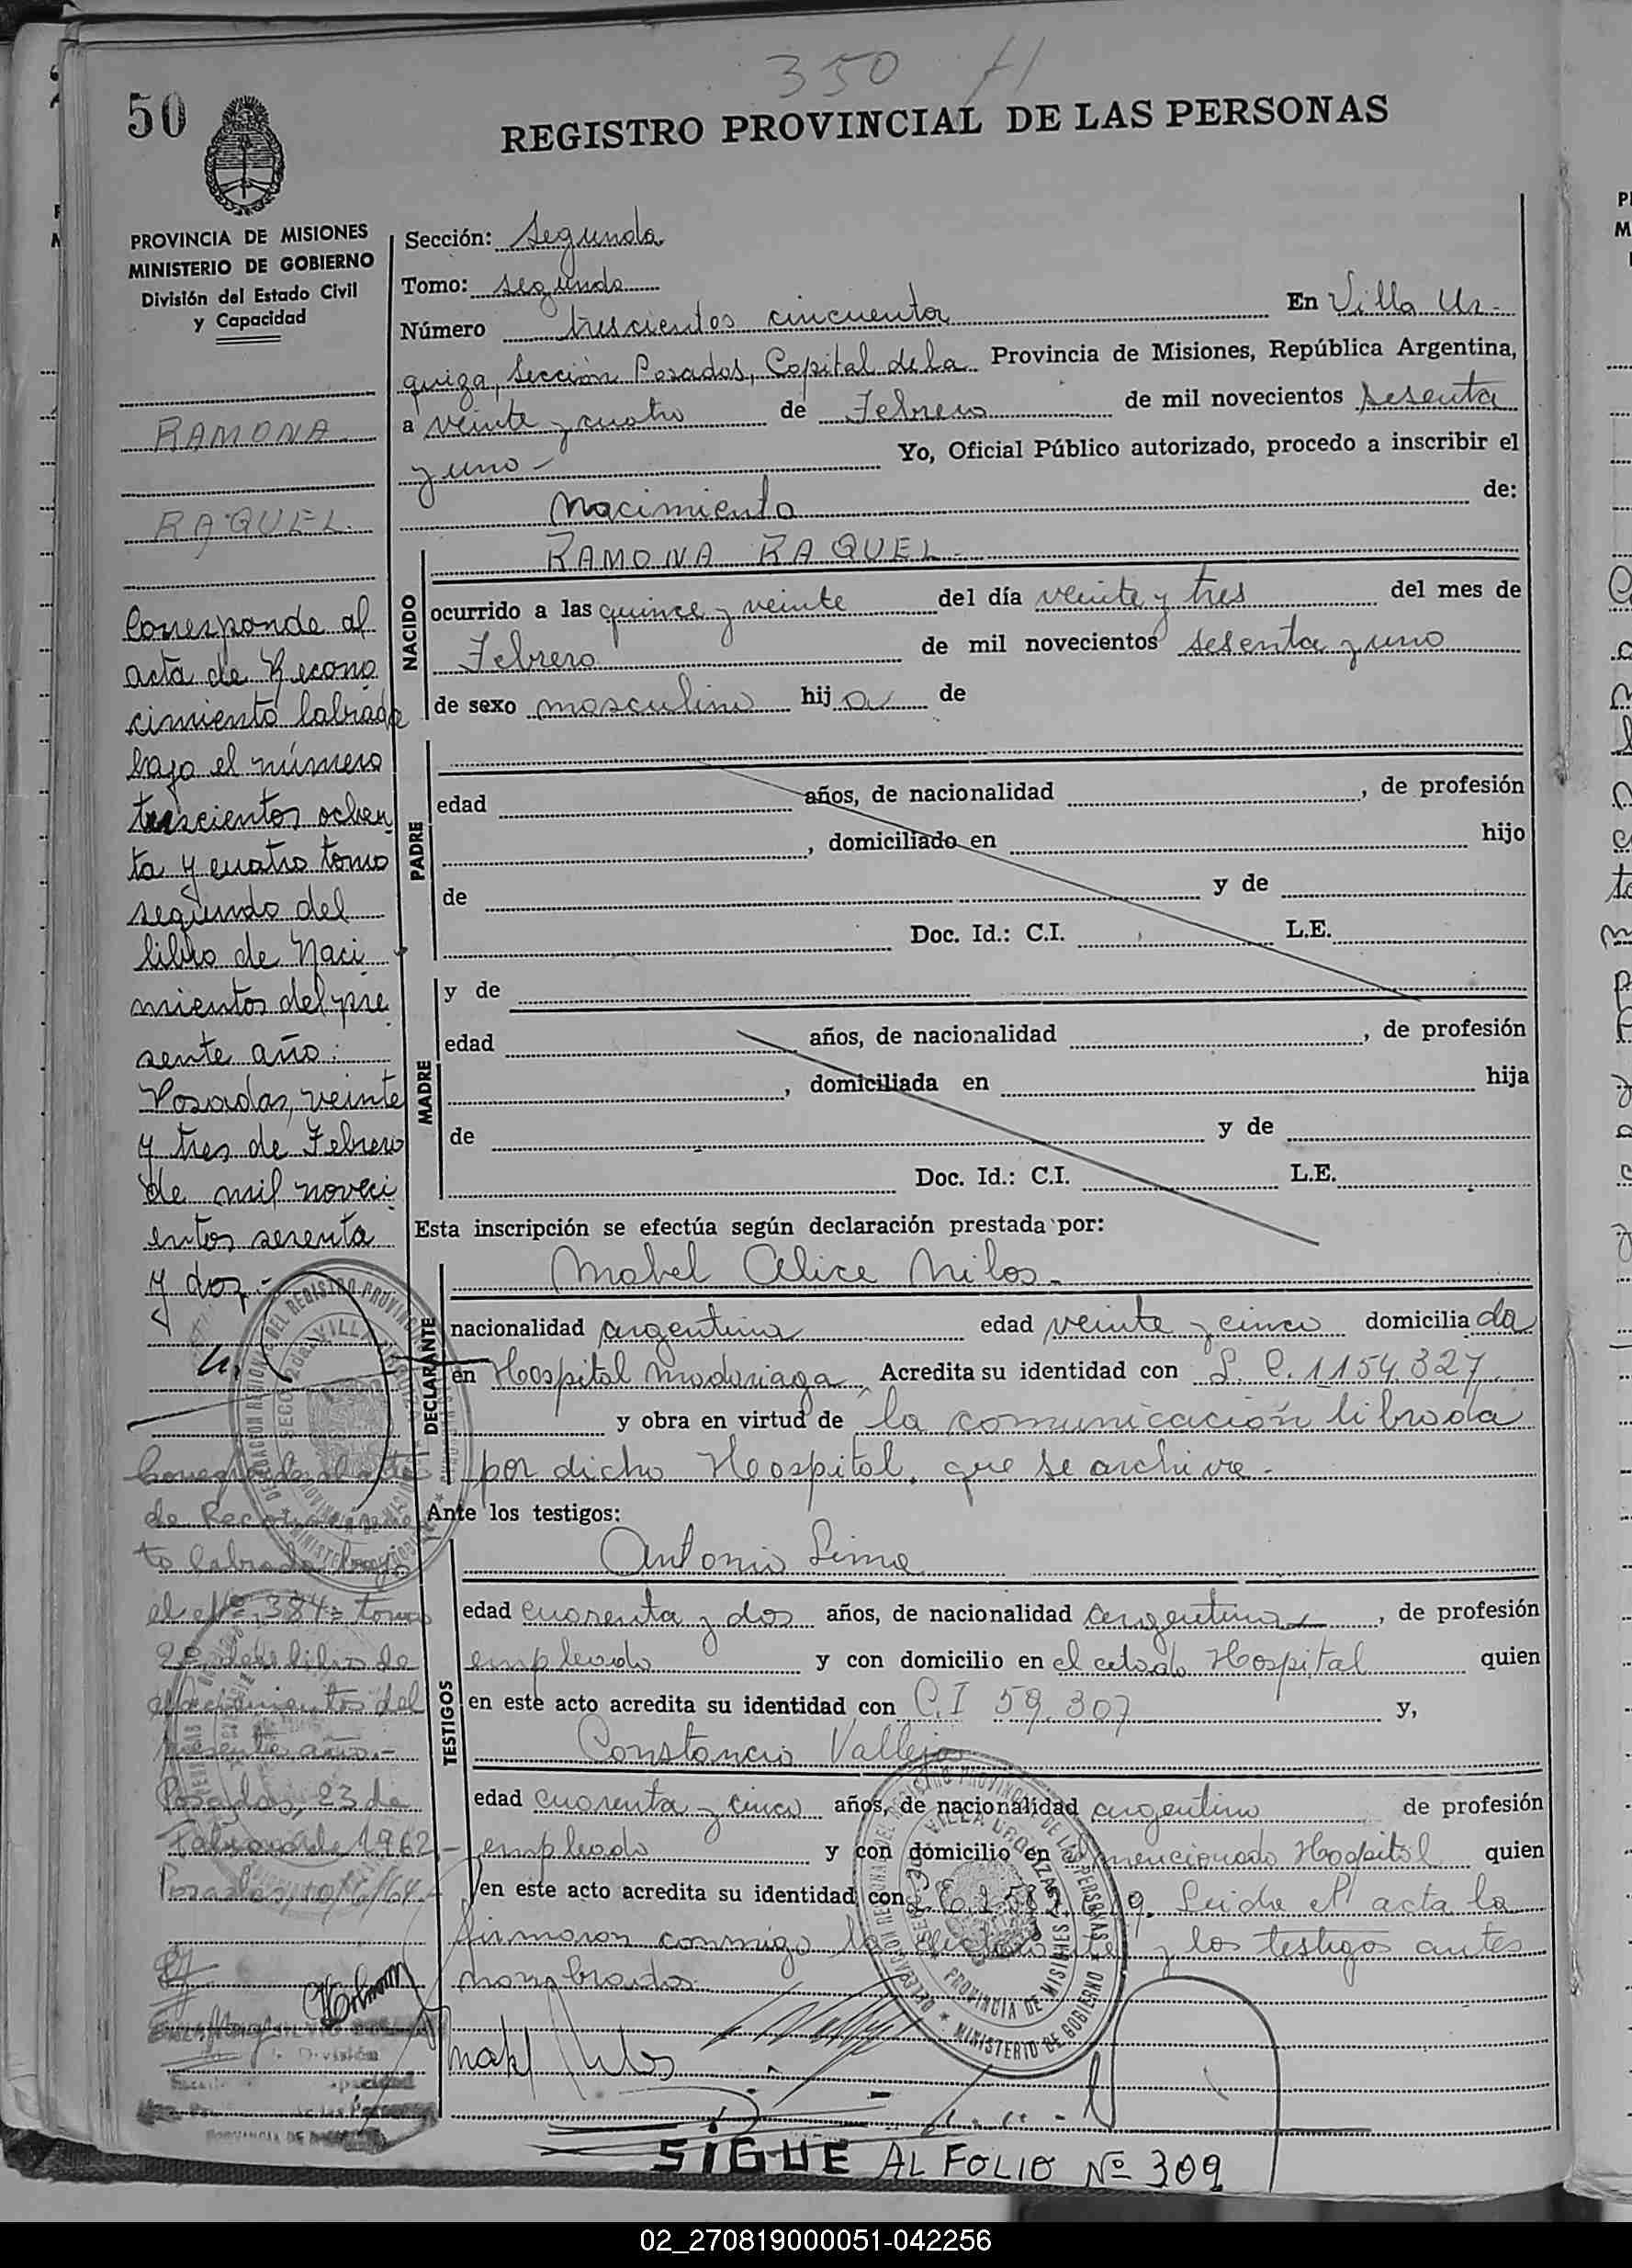 350 fl
50
REGISTRO PROVINCIAL DE LAS PERSONAS
PROVINCIA DE MISIONES
MINISTERIO DE GOBIERNO
División del Estado Civil
y Capacidad
RAMONA
RAQUEL
Corresponde al
acta de Recono
cimiento labrada
bajo el número
trescientos ochen
ta y cuatro tomo
segundo del
libro de Naci
mientos del pre
sente año.
Posadas, veinte
y tres de Febrero
de mil noveci
entos sesenta
y dos.-
de
to labrado bajo
el Nº 384= tomo
2º del libro de
Nacimientos del
presente año.-
Posadas, 23 de
Febrero de 1962.-
Posadas,
División
Sección: Segunda
Tomo: segundo
Número trescientos cincuenta En Villa Ur-
quiza, Sección Posadas, Capital de la Provincia de Misiones, República Argentina,
a veinte y cuatro de Febrero de mil novecientos sesenta
y uno- Yo, Oficial Público autorizado, procedo a inscribir el
Nacimiento de:
NACIDO
RAMONA RAQUEL.-
ocurrido a las quince y veinte del día veinte y tres del mes de
Febrero de mil novecientos sesenta y uno
de sexo masculino hij a de
PADRE
edad años, de nacionalidad , de profesión
, domiciliado en hijo
de y de
Doc. Id.: C.I. L.E.
MADRE
y de
edad años, de nacionalidad , de profesión
, domiciliada en hija
de y de
Doc. Id.: C.I. L.E.
Esta inscripción se efectúa según declaración prestada por:
DECLARANTE
Mabel Alice Milos.-
nacionalidad argentina edad veinte y cinco domicilia da
en Hospital Madariaga, Acredita su identidad con L. C. 1154.327
y obra en virtud de la comunicación librada
por dicho Hospital, que se archiva.-
Ante los testigos:
TESTIGOS
Antonio Lima
edad cuarenta y dos años, de nacionalidad argentina , de profesión
empleado y con domicilio en el citado Hospital quien
en este acto acredita su identidad con C.I 59.307 y,
Constancio Vallejos
edad cuarenta y cinco años, de nacionalidad argentino de profesión
empleado y con domicilio en el mencionado Hospital quien
en este acto acredita su identidad con Leida el acta la
firmaron conmigo la declarante y los testigos antes
nombrados.
SIGUE AL FOLIO Nº 309
02_270819000051-042256